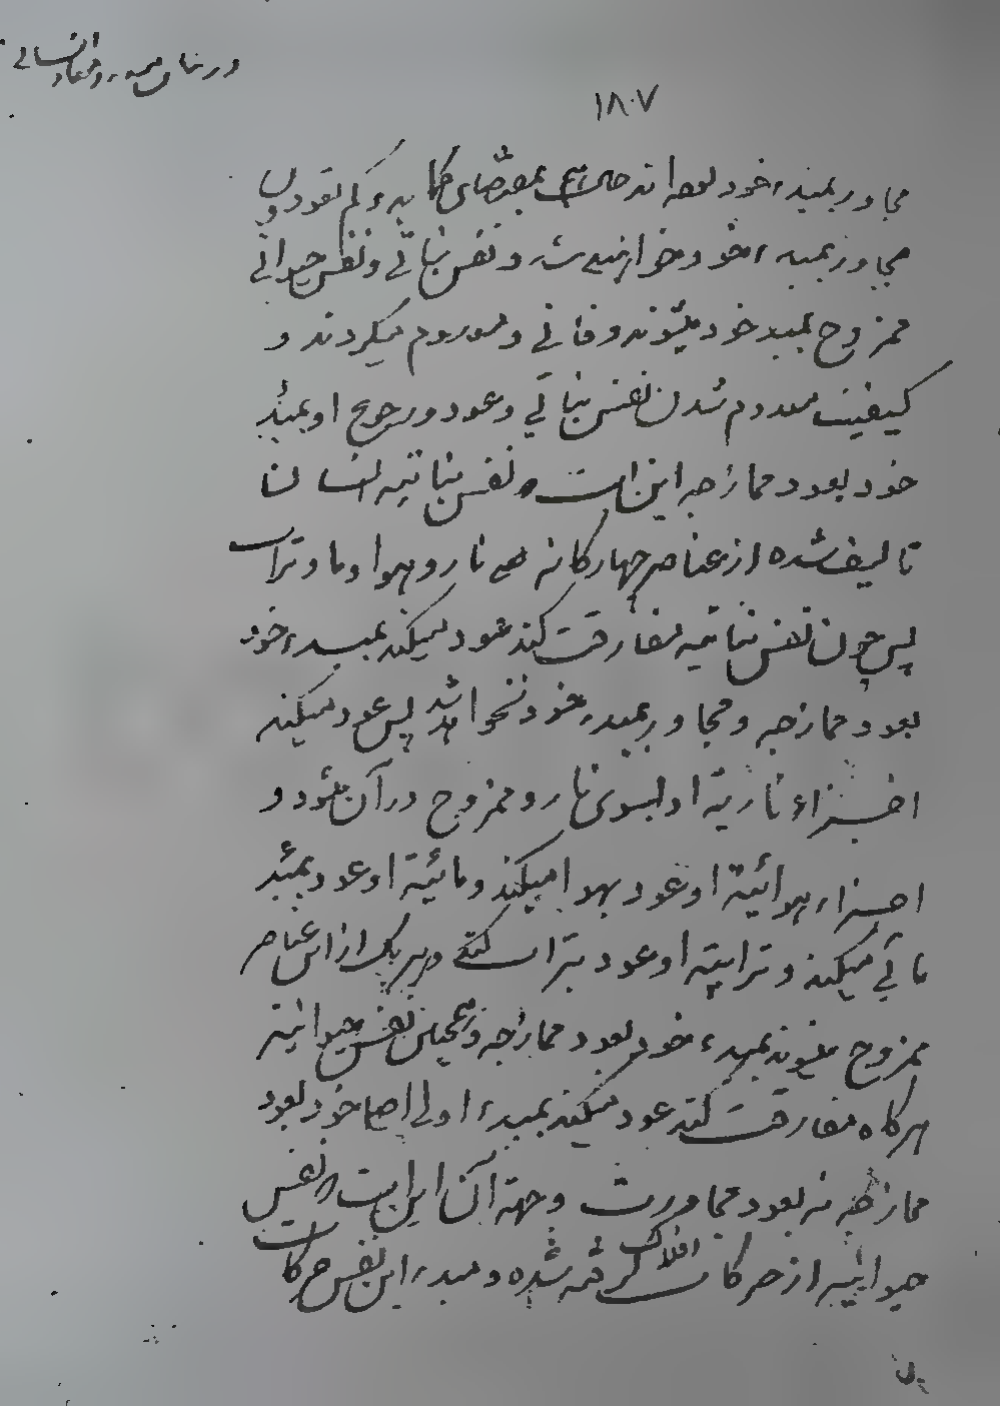 در بیان مبدء و معاد انسانی
۱۸۰۷
مجاور بمبدء خود بمقتضای کما بدءکم تعودون
مجاور بمبدء خود خواهند شد و نفس نباتی و نفس حیوانی
ممزوج بمبدء خود میشوند و فانی و معدوم میکردند و
کیفیت معدوم شدن نفس نباتی و عود و رجوع او بمبدء
خود بعود ممازجه این است نفس نباتیه انسان
تالیف شده از عناصر چهارکانه نار و هوا و ما و تراب
پس چون نفس نباتیه مفارقت کند عود میکند بمبدء خود
بعود ممازجه و مجاور بمبدء خود نخواهد شد پس عود میکند
اجزاء ناریة او بسوی نار و ممزوج در آن شود و
اجزاء هوائیة او عود بهوا میکند و مائیة او عود بمبدء
مائی میکند و ترابیة او عود بتراب کند و هر یک از این عناصر
ممزوج میشوند بمبدء خود بعود ممازجه و همچنین نفس حیوانیة
هرکاه مفارقت کند عود میکند بمبدء اولی اصل خود بعود
ممازجه نه بعود مجاورت و جهة آن این است نفس
حیوانیه از حرکات افلاک گرفته شده و مبدء این نفس حرکات